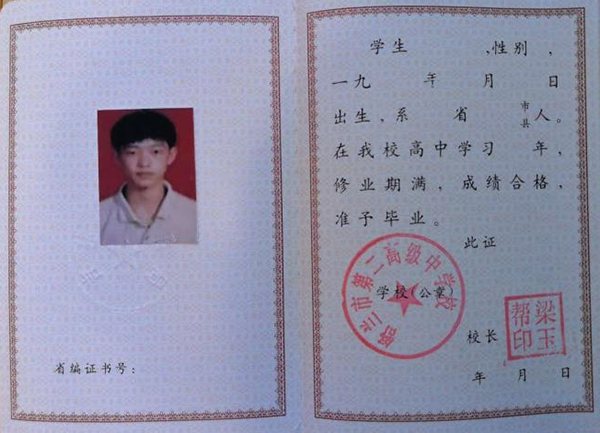 省编证书号：
学生　　、性别　，
一九　　年　　月　　日
出生，系　　省　　市县人。
在我校高中学习　　年，
修业期满，成绩合格，
准予毕业。
此证
市第二高级中学校
学校（公章）
校长
梁玉
帮印
年　月　日